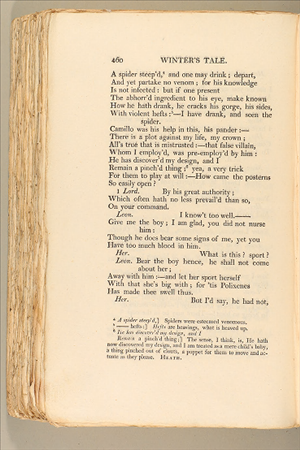 460 WINTER'S TALE.
A spider steep'd,⁸ and one may drink; depart,
And yet partake no venom; for his knowledge
Is not infected: but if one present
The abhorr'd ingredient to his eye, make known
How he hath drank, he cracks his gorge, his sides,
With violent hefts:⁹—I have drank, and seen the
spider.
Camillo was his help in this, his pander:—
There is a plot against my life, my crown;
All's true that is mistrusted:—that false villain,
Whom I employ'd, was pre-employ'd by him:
He has discover'd my design, and I
Remain a pinch'd thing;¹ yea, a very trick
For them to play at will:—How came the posterns
So easily open?
1 Lord. By his great authority;
Which often hath no less prevail'd than so,
On your command.
Leon. I know't too well.——
Give me the boy; I am glad, you did not nurse
him:
Though he does bear some signs of me, yet you
Have too much blood in him.
Her. What is this? sport?
Leon. Bear the boy hence, he shall not come
about her;
Away with him:—and let her sport herself
With that she's big with; for 'tis Polixenes
Has made thee swell thus.
Her. But I'd say, he had not,
⁸ A spider steep'd,] Spiders were esteemed venomous.
⁹ —— hefts:] Hefts are heavings, what is heaved up.
¹ He has discover'd my design, and I
Remain a pinch'd thing;] The sense, I think, is, He hath
now discovered my design, and I am treated as a mere child's baby,
a thing pinched out of clouts, a puppet for them to move and ac-
tuate as they please. HEATH.